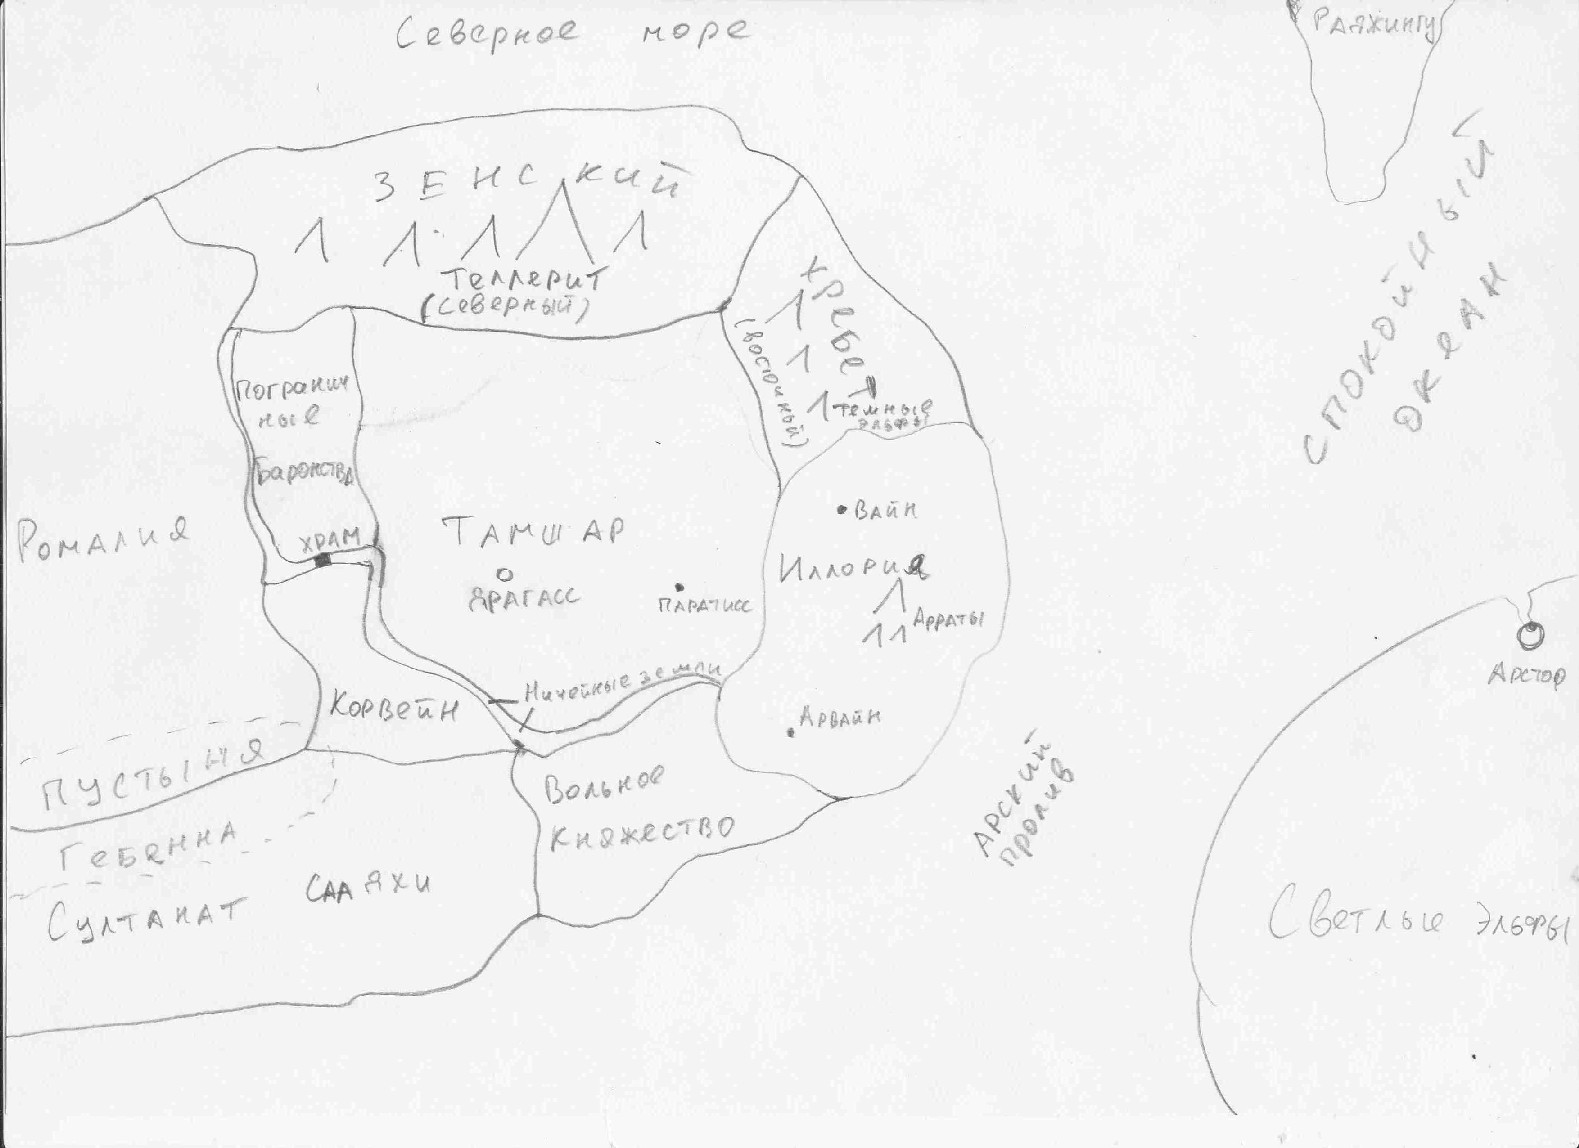 Северное море
Раяжингу
ЗЕНСКИЙ
Теллерит
(Северный)
ХРЕБЕТ
(Восточный)
Темные
эльфы
СПОКОЙНЫЙ
ОКЕАН
Погранич
ные
Баронства
ХРАМ
Ромалия
ТАМШАР
ЯРАГАСС
ПАРАТИСС
ВАЙН
Иллория
АРРАТЫ
АРВАЙН
Ничейные земли
КОРВЕЙН
ПУСТЫНЯ
ГЕБЕННА
СУЛТАНАТ СААЯХИ
Вольное
Княжество
АРСКИЙ
ПРОЛИВ
Арстор
Светлые эльфы